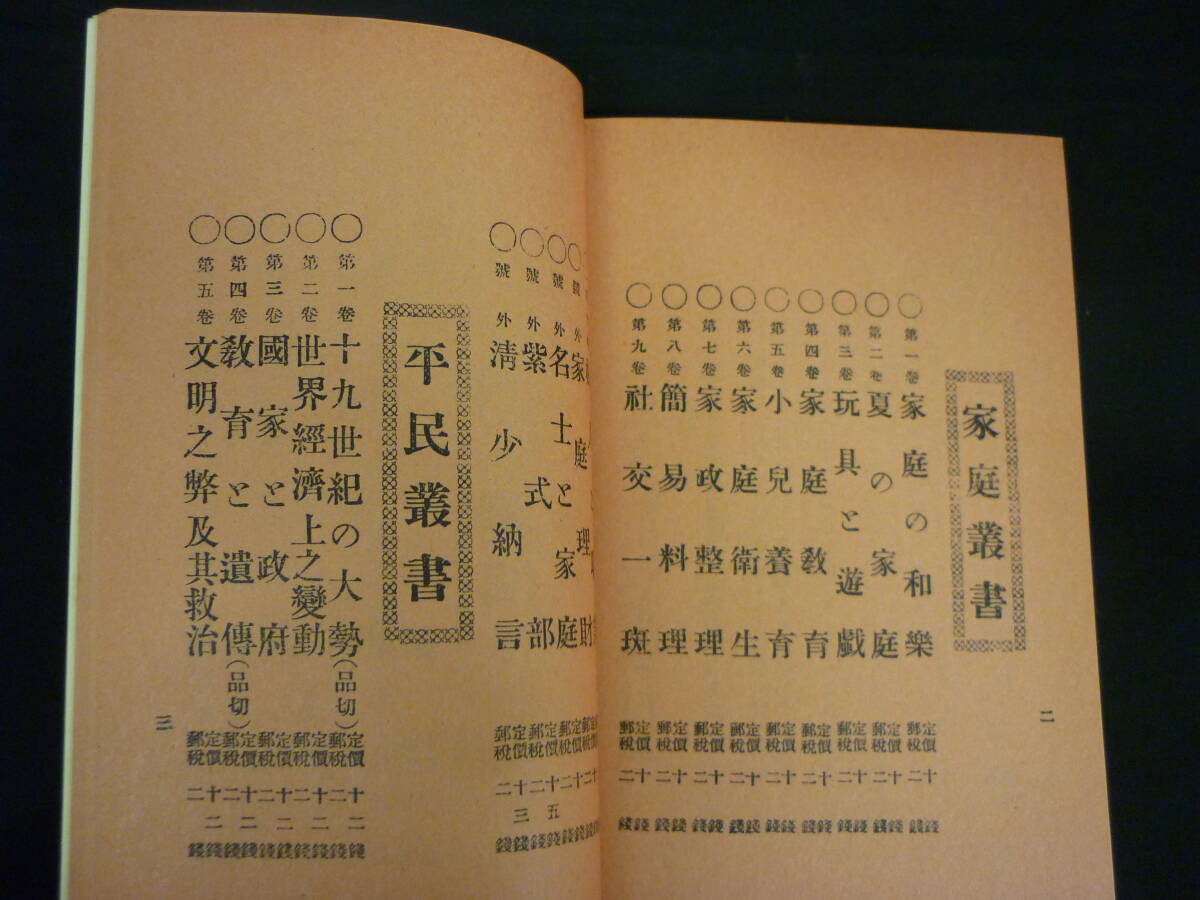 家庭叢書
○第一卷 家庭の和樂 定價十錢 郵稅二錢
○第二卷 夏の家庭 定價十錢 郵稅二錢
○第三卷 玩具と遊戲 定價十錢 郵稅二錢
○第四卷 家庭敎育 定價十錢 郵稅二錢
○第五卷 小兒養育 定價十錢 郵稅二錢
○第六卷 家庭衛生 定價十錢 郵稅二錢
○第七卷 家政整理 定價十錢 郵稅二錢
○第八卷 簡易料理 定價十錢 郵稅二錢
○第九卷 社交一斑 定價十錢 郵稅二錢
二
○號外 家庭理財
○號外 名士と家庭 定價十錢 郵稅二錢
○號外 紫式部 定價十五錢 郵稅二錢
○號外 淸少納言 定價十三錢 郵稅二錢
平民叢書
○第一卷 十九世紀の大勢(品切) 定價十二錢 郵稅二錢
○第二卷 世界經濟上之變動 定價十二錢 郵稅二錢
○第三卷 國家と政府 定價十二錢 郵稅二錢
○第四卷 敎育と遺傳(品切) 定價十二錢 郵稅二錢
○第五卷 文明之弊及其救治 定價十二錢 郵稅二錢
三